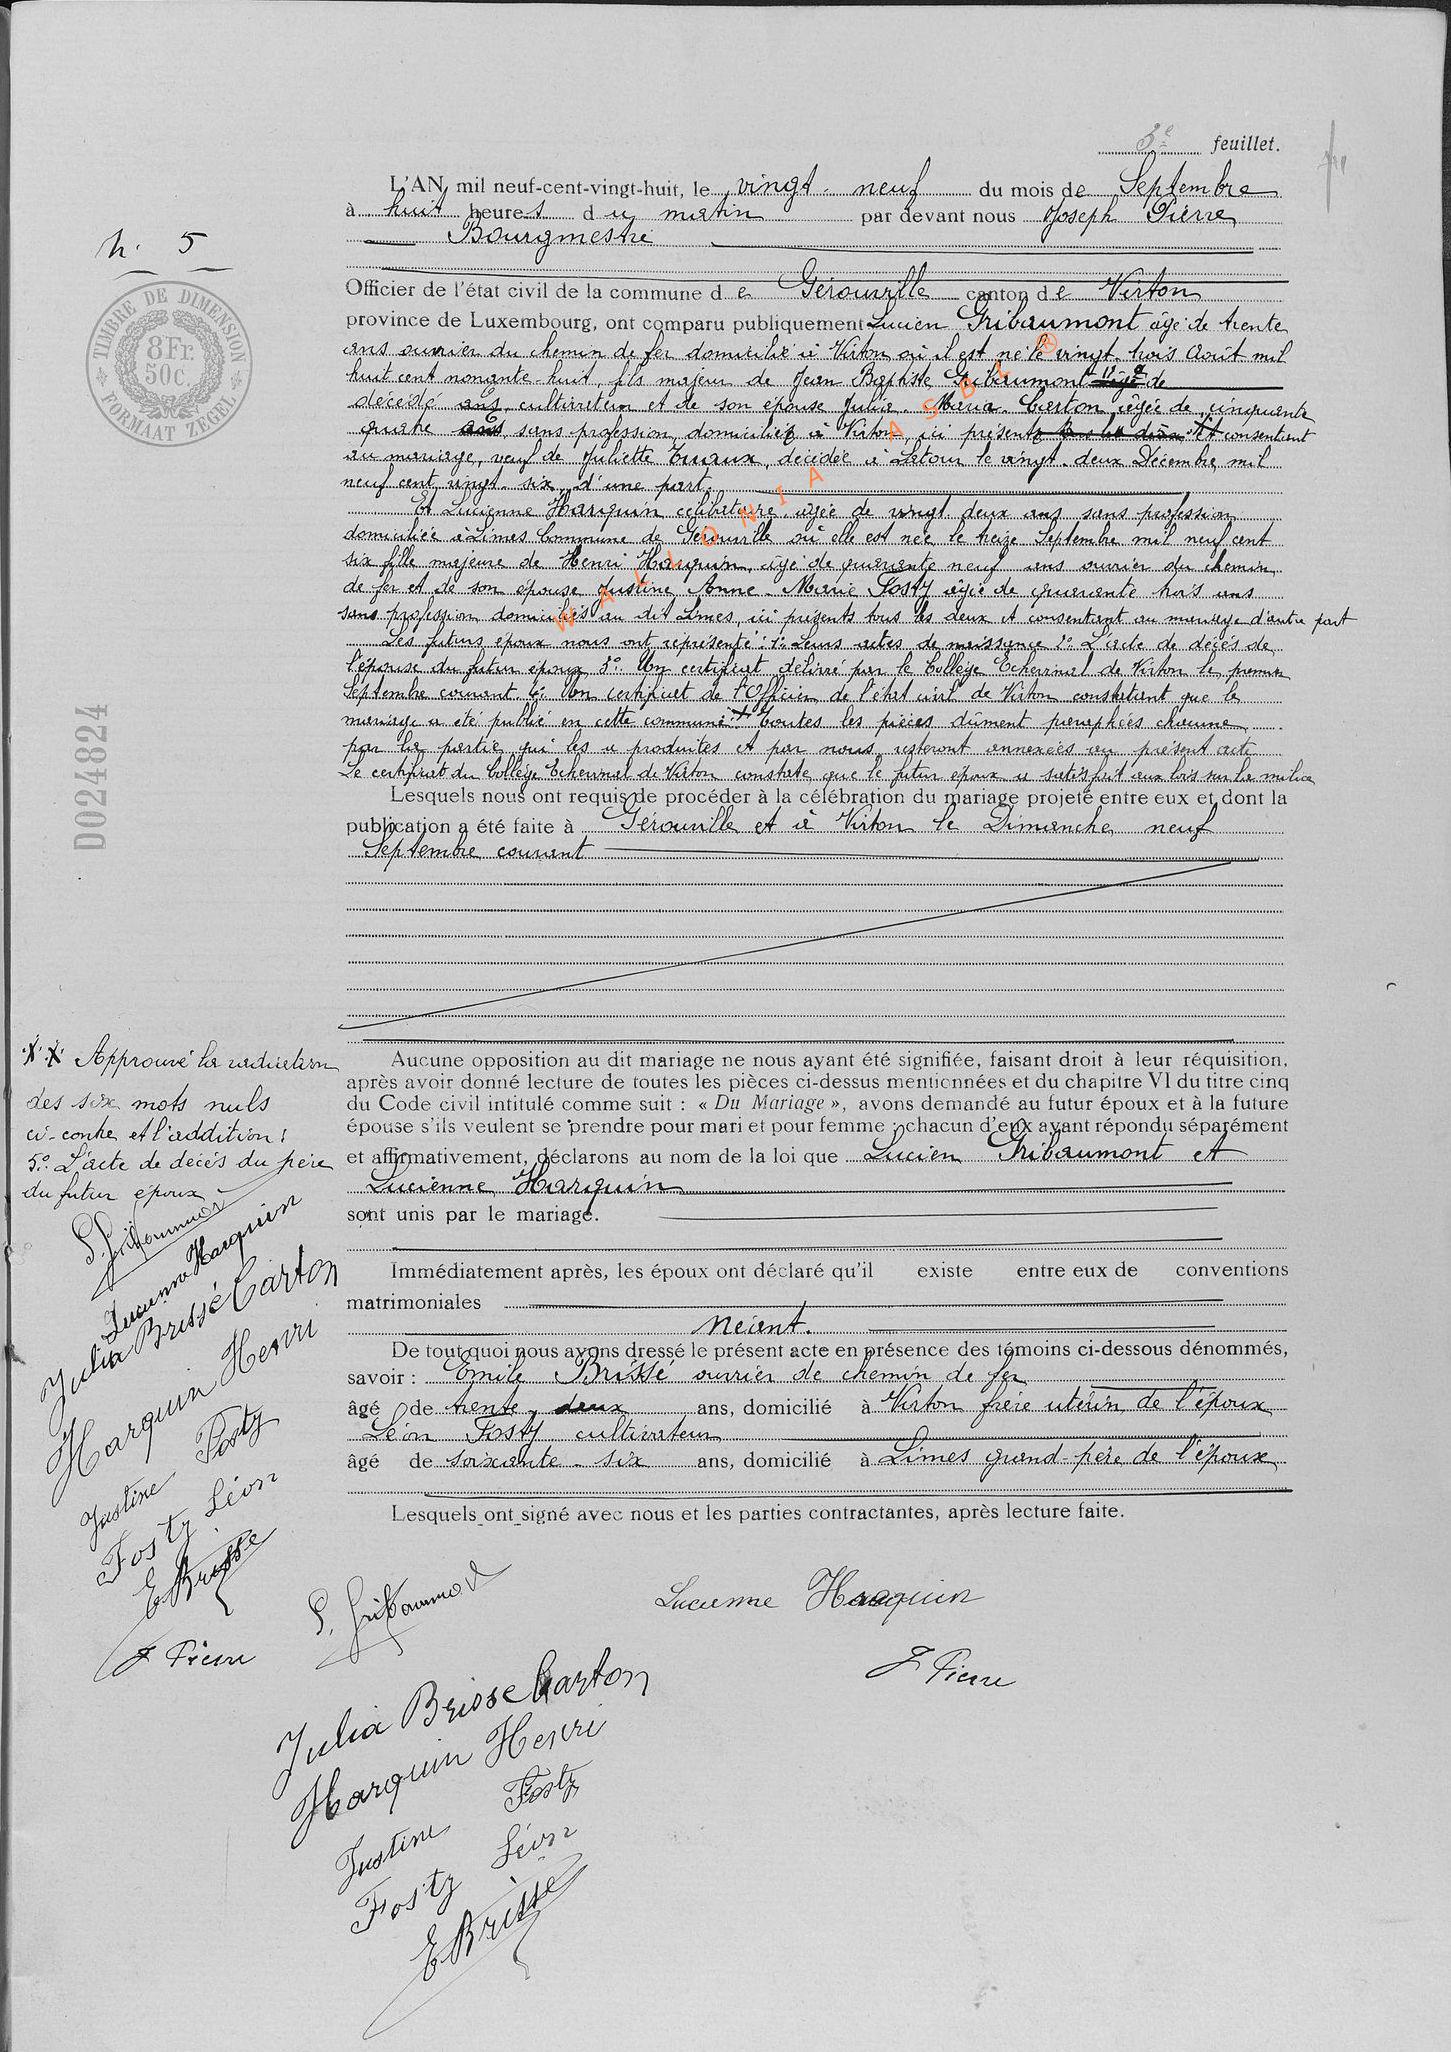 3e feuillet.
L'AN mil neuf-cent-vingt-huit, le vingt-neuf du mois de Septembre
à huit heures du matin par devant nous Joseph Pierre
Bourgmestre
N° 5
TIMBRE DE DIMENSION
8Fr.
50c.
FORMAAT ZEGEL
Officier de l'état civil de la commune de Gérouville canton de Virton
province de Luxembourg, ont comparu publiquement Lucien Gribaumont âgé de trente
ans ouvrier du chemin de fer domicilié à Virton où il est né le vingt-trois Août mil
huit cent nonante-huit, fils majeur de Jean Baptiste Gribaumont âgé de
décédé ans, cultivateur et de son épouse Julie-Maria Carton âgée de cinquante
quatre ans sans profession, domiciliée à Virton, ici présente tous les deux et consentant
au mariage, veuf de Juliette Tuaux, décédée à Latour le vingt-deux Décembre mil
neuf cent vingt-six, d'une part,
Et Lucienne Harquin célibataire, âgée de vingt deux ans sans profession
domiciliée à Limes Commune de Gérouville où elle est née le treize Septembre mil neuf cent
six fille majeure de Henri Harquin, âgé de quarante neuf ans ouvrier du chemin
de fer et de son épouse Justine Anne-Marie Fosty âgée de quarante trois ans
sans profession domiciliés au dit Limes, ici présents tous les deux et consentant au mariage d'autre part
Les futurs époux nous ont représenté: 1° Leurs actes de naissance 2° L'acte de décès de
l'épouse du futur époux 3° Un certificat délivré par le Collège Echevinal de Virton le premier
Septembre courant 4° Un certificat de l'Officier de l'état civil de Virton constatant que le
mariage a été publié en cette commune. X Toutes les pièces dûment paraphées chacune
par la partie qui les a produites et par nous, resteront annexées au présent acte
Le certificat du Collège Echevinal de Virton constate que le futur époux a satisfait aux lois sur la milice
D024824
WALLONIA ASBL ®
Lesquels nous ont requis de procéder à la célébration du mariage projeté entre eux et dont la
publication a été faite à Gérouville et à Virton le Dimanche neuf
Septembre courant
X X Approuvé la radiation
des six mots nuls
ci-contre et l'addition:
5° L'acte de décès du père
du futur époux
L. Gribaumont
Lucienne Harquin
Julia Brissé Carton
Harquin Henri
Justine Fosty
Fosty Léon
E Brisse
J Pierre
Aucune opposition au dit mariage ne nous ayant été signifiée, faisant droit à leur réquisition,
après avoir donné lecture de toutes les pièces ci-dessus mentionnées et du chapitre VI du titre cinq
du Code civil intitulé comme suit : « Du Mariage », avons demandé au futur époux et à la future
épouse s'ils veulent se prendre pour mari et pour femme ; chacun d'eux ayant répondu séparément
et affirmativement, déclarons au nom de la loi que Lucien Gribaumont et
Lucienne Harquin
sont unis par le mariage.
Immédiatement après, les époux ont déclaré qu'il existe entre eux de conventions
matrimoniales
Néant.
De tout quoi nous avons dressé le présent acte en présence des témoins ci-dessous dénommés,
savoir : Emile Brissé ouvrier de chemin de fer
âgé de trente-deux ans, domicilié à Virton frère utérin de l'époux
Léon Fosty cultivateur
âgé de soixante-six ans, domicilié à Limes grand-père de l'époux
Lesquels ont signé avec nous et les parties contractantes, après lecture faite.
L. Gribaumont
Lucienne Harquin
J Pierre
Julia Brisse Carton
Harquin Henri
Justine Fosty
Fosty Léon
E Brisse